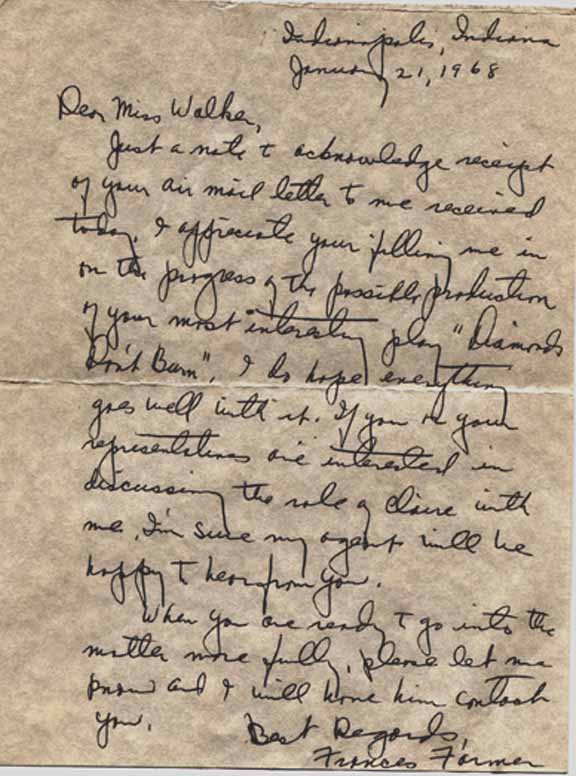 Indianapolis, Indiana
January 21, 1968
Dear Miss Walker,
Just a note to acknowledge receipt
of your air mail letter to me received
today. I appreciate your filling me in
on the progress of the possible production
of your most interesting play "Diamonds
Don't Burn". I do hope everything
goes well with it. If you or your
representatives are interested in
discussing the role of Claire with
me, I'm sure my agent will be
happy to hear from you.
When you are ready to go into the
matter more fully, please let me
know and I will have him contact
you.
Best Regards,
Frances Farmer